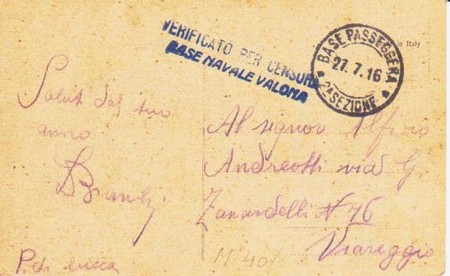 VERIFICATO PER CENSURA
BASE NAVALE VALONA
BASE PASSEGGERA
27.7.16
2ª SEZIONE
in Italy
Saluti dal tuo
amico
Al signor Alfizo
Andreotti via G.
Zanardelli N 76
Viareggio
P. di Lucca
M 40